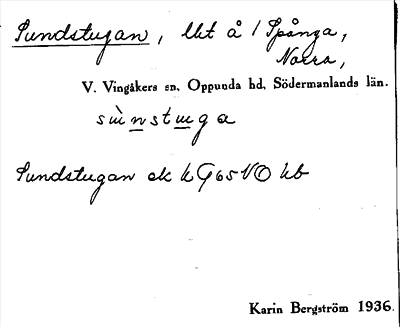 Sundstugan, lht å / Spånga,
Norra,
V. Vingåkers sn, Oppunda hd, Södermanlands län.
sùnstuga
Sundstugan ek k G65 VO
Karin Bergström 1936.